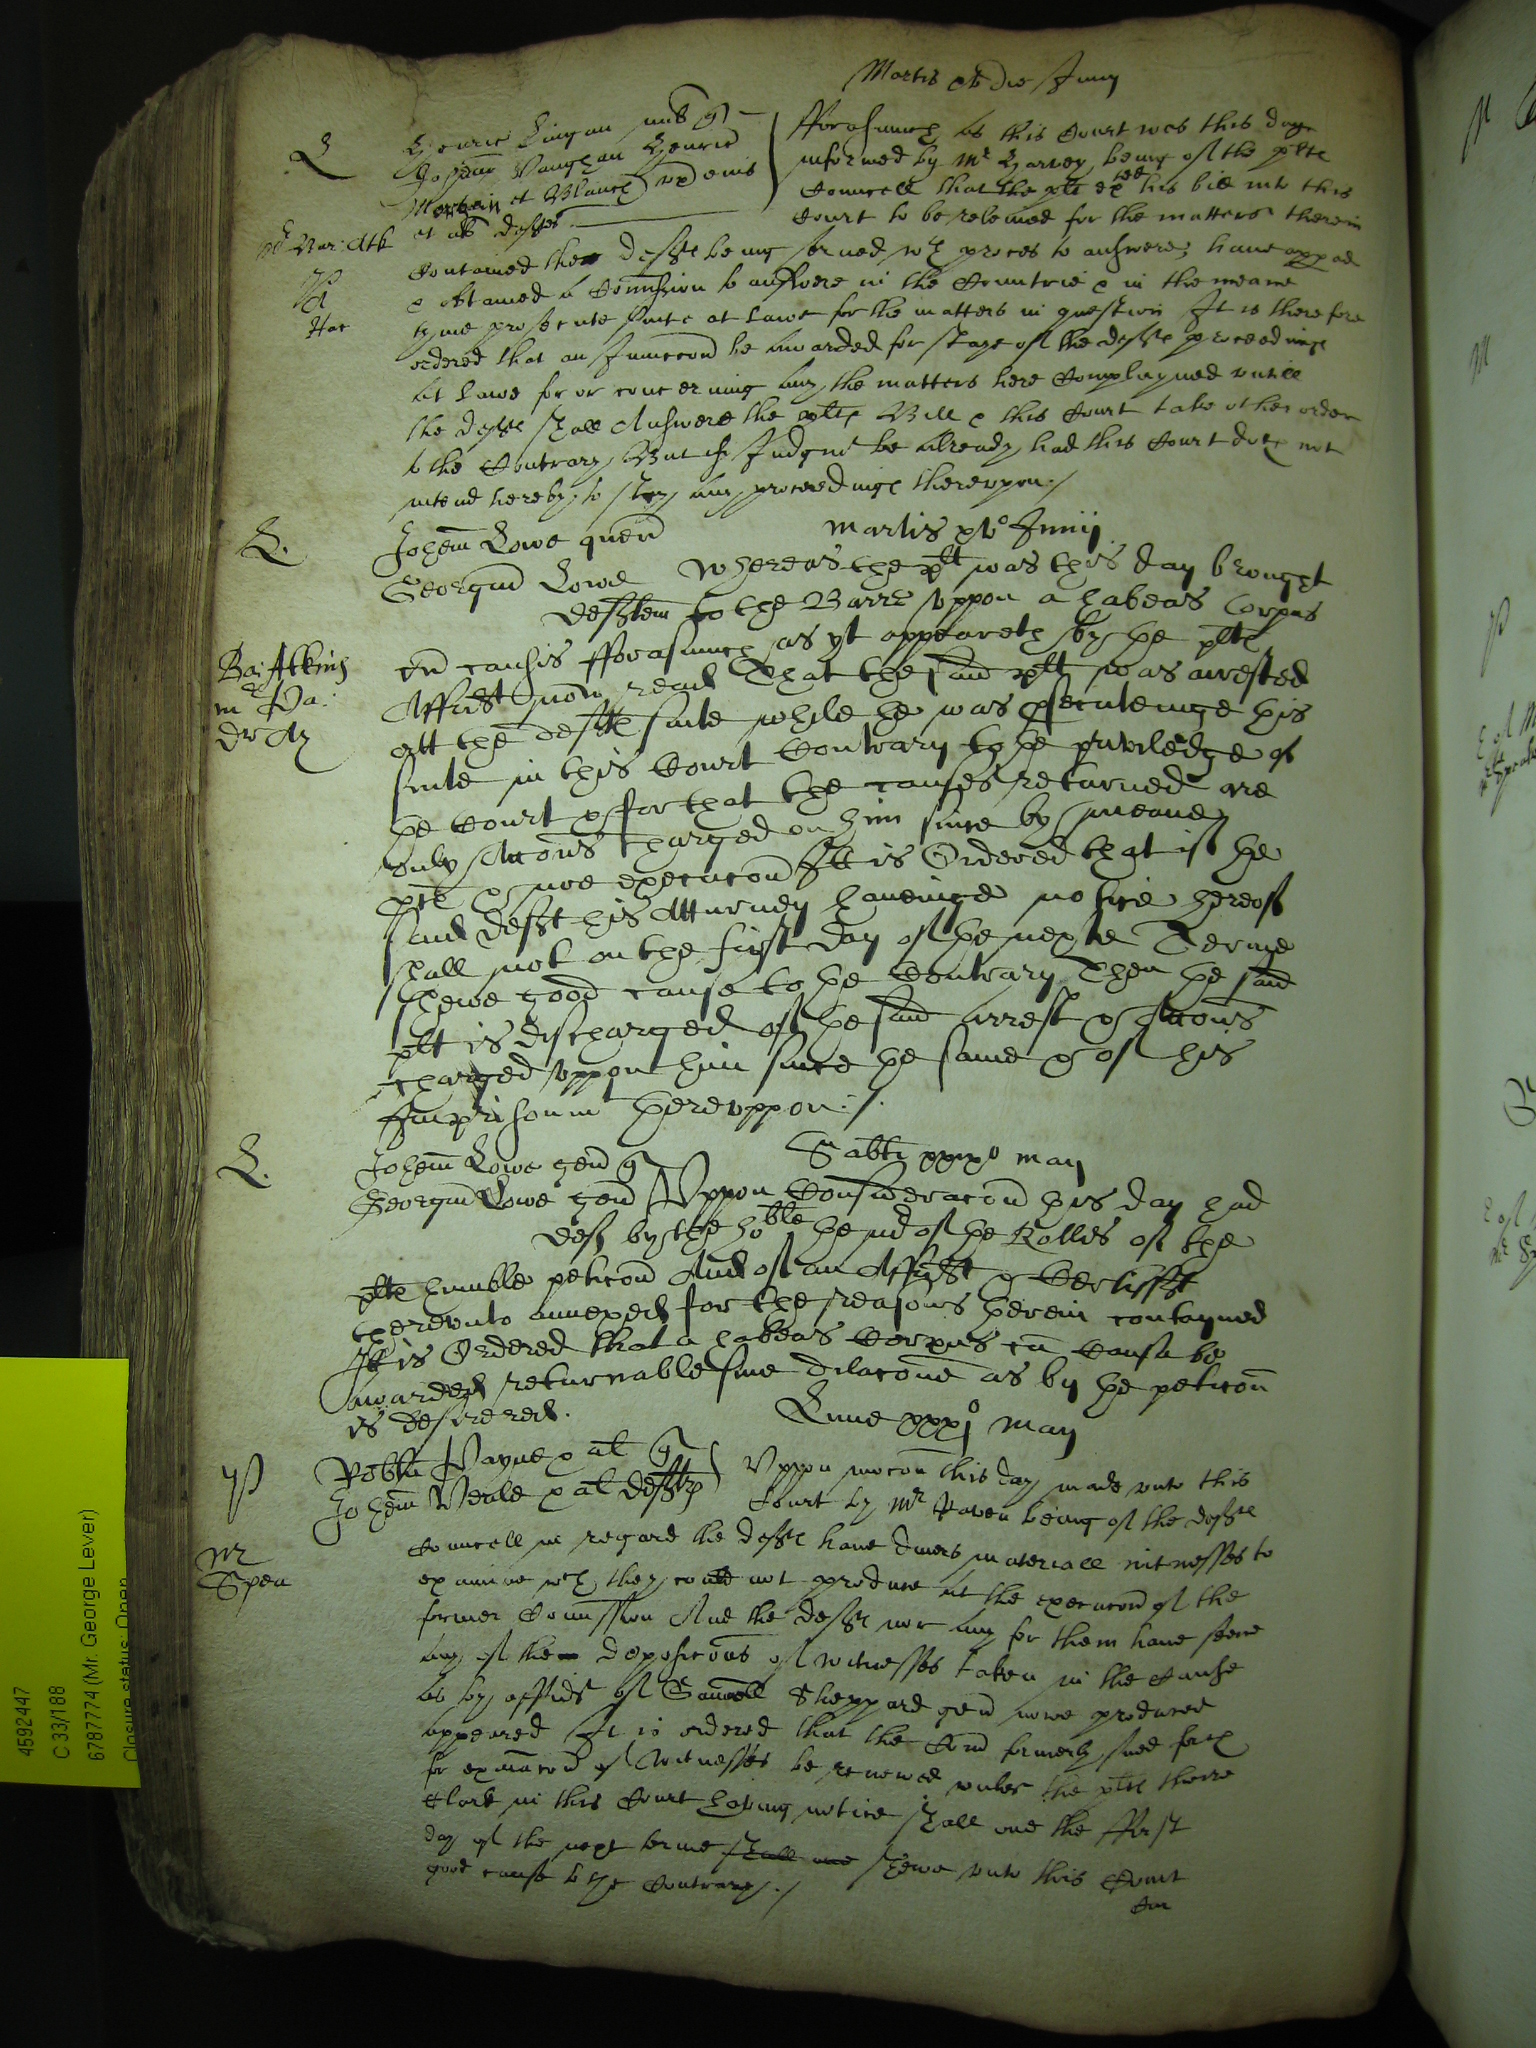 Martis xv die Junij
L
Henric Lingan mil q
Johem Vaughan Henric
Morgan et Blanch ux eius
et al defts
Forasmuch as this Court was this daye
informed by Mr Harvey being of the plts
Councell that the plt exhited his bill into this
Court to be releived for the matters therein
Bar: Atk
Har
contained the defts being served wth proces to answere, have appad
& obtained a Comission to answere in the Countrie & in the meane
tyme prosecute suite at Lawe for the matters in question It is therefore
ordered that an Iniunccon be awarded for staye of the defts proceedings
at Lawe for or concerning any the matters here Complayned untill
the defts shall Answere the plts Bill & this Court take other order
to the Contrary But if Judgmt be already had this Court doth not
intend hereby to stay any proceedings thereupon /
L.
Johem Lowe quer
Martis xvo Junij
Georgiu Lowe
Whereas the plt was this day brought
deften to the Barre uppon a habeas Corpus
Ba: Atkins
Mr Pa:
cu causis fforasmuch as yt appeareth by the plts
Affidt now read That the said plt was arrested
att the defts suite while he was psecuteinge his
suite in this Court Contrary to the priviledge of
the Court & for that the causes returned are
only Accons charged on him since by meane
& noe execucon It is Ordered that if the
said deft his Atturney haveinge notice hereof
shall not on the first day of the nexte Terme
shewe good cause to the Contrary Then the said
plt is discharged of the said arrest & Accons
charged uppon him since the same & of his
Imprisonmt thereuppon :/.
L.
Johem Lowe gen q
Sabti xxixo Maij
Georgiu Lowe gen
Uppon Consideracon this day had
def by the hoble the mr of the Rolles of the
plts humble peticon And of an Affidt & Certifft
thereunto annexed for the reasons therein contayned
It is Ordered that a habeas Corpus cu Causa be
awarded returnable sine dilacone as by the peticon
is desirered.
Lune xxxjo Maij
P
Robtu Payne & al q
Johem Verle & al defts
Uppon mocon this day made unto this
Court by Mr Raven being of the defts
Mr
Spen
Councell in regard the defts have divers materiall witnesses to
examine wch they could not produce at the execucon of the
former Comission And the defts nor any for them have seene
any of the deposicons of witnesses taken in the Cause
as by affidt of Samuell Sheppard gen nowe produced
appeared It is ordered that the Com formerly sued forth
for exaiacon of Witnesses be renewed unles the plts theire
Clark in this Court having notice shall one the ffirst
day of the next terme shall one shewe unto this Court
good cause to the Contrary. /
4592447
C 33/188
6787774 (Mr. George Lever)
Closure status: Open